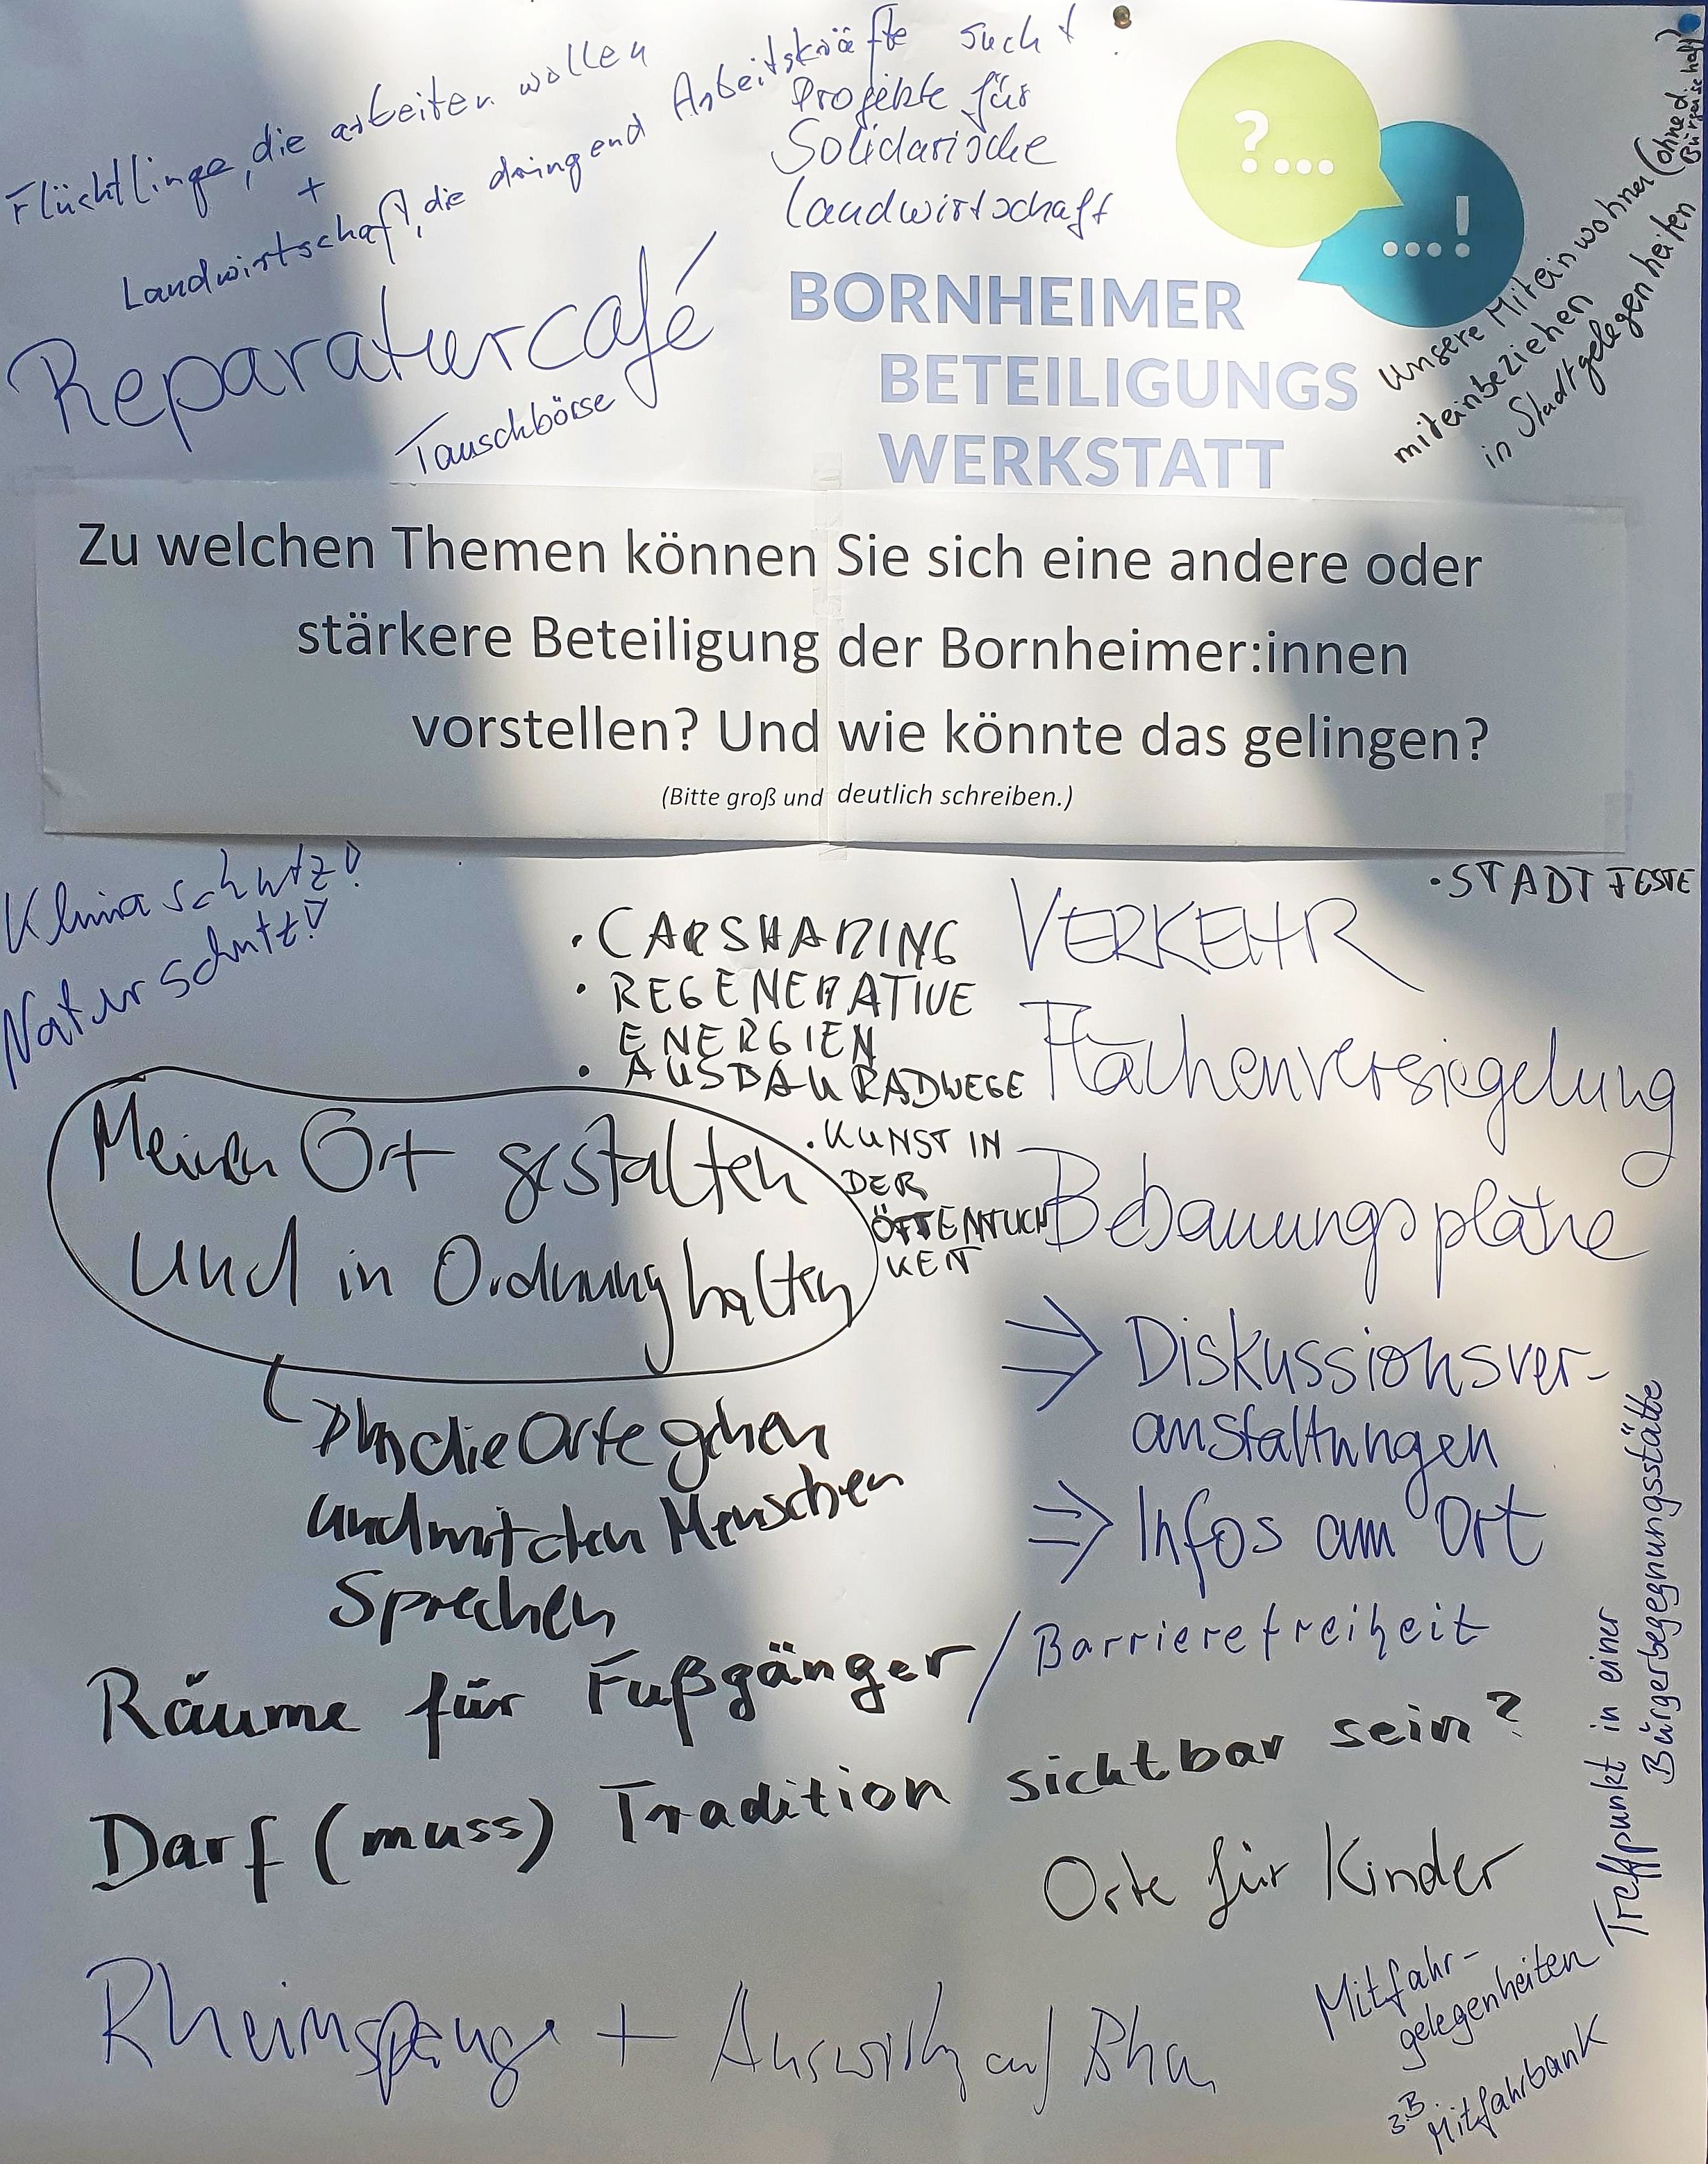 Flüchtlinge, die arbeiten wollen
+
Landwirtschaft, die dringend Arbeitskräfte sucht!
Projekte für
Solidarische
Landwirtschaft
?....
...!
Reparaturcafé
Tauschbörse
BORNHEIMER
BETEILIGUNGS
WERKSTATT
Unsere Miteinwohner (ohne d.
Bürgerschaft)
miteinbeziehen
in Stadtgelegenheiten
Zu welchen Themen können Sie sich eine andere oder
stärkere Beteiligung der Bornheimer:innen
vorstellen? Und wie könnte das gelingen?
(Bitte groß und deutlich schreiben.)
Klimaschutz!
Naturschutz!
• CARSHARING
• REGENERATIVE
ENERGIEN
• AUSBAU RADWEGE
• KUNST IN
DER
ÖFFENTLICH
KEIT
• STADTFESTE
VERKEHR
Flächenversiegelung
Bebauungspläne
⇒ Diskussionsver-
anstaltungen
⇒ Infos am Ort
Meinen Ort gestalten
und in Ordnung halten
In die Orte gehen
und mit den Menschen
Sprechen
Räume für Fußgänger / Barrierefreiheit
Darf (muss) Tradition sichtbar sein?
Orte für Kinder
Treffpunkt in einer
Bürgerbegegnungsstätte
Rheinspange + Auswirk auf
Mitfahr-
gelegenheiten
z.B. Mitfahrbank